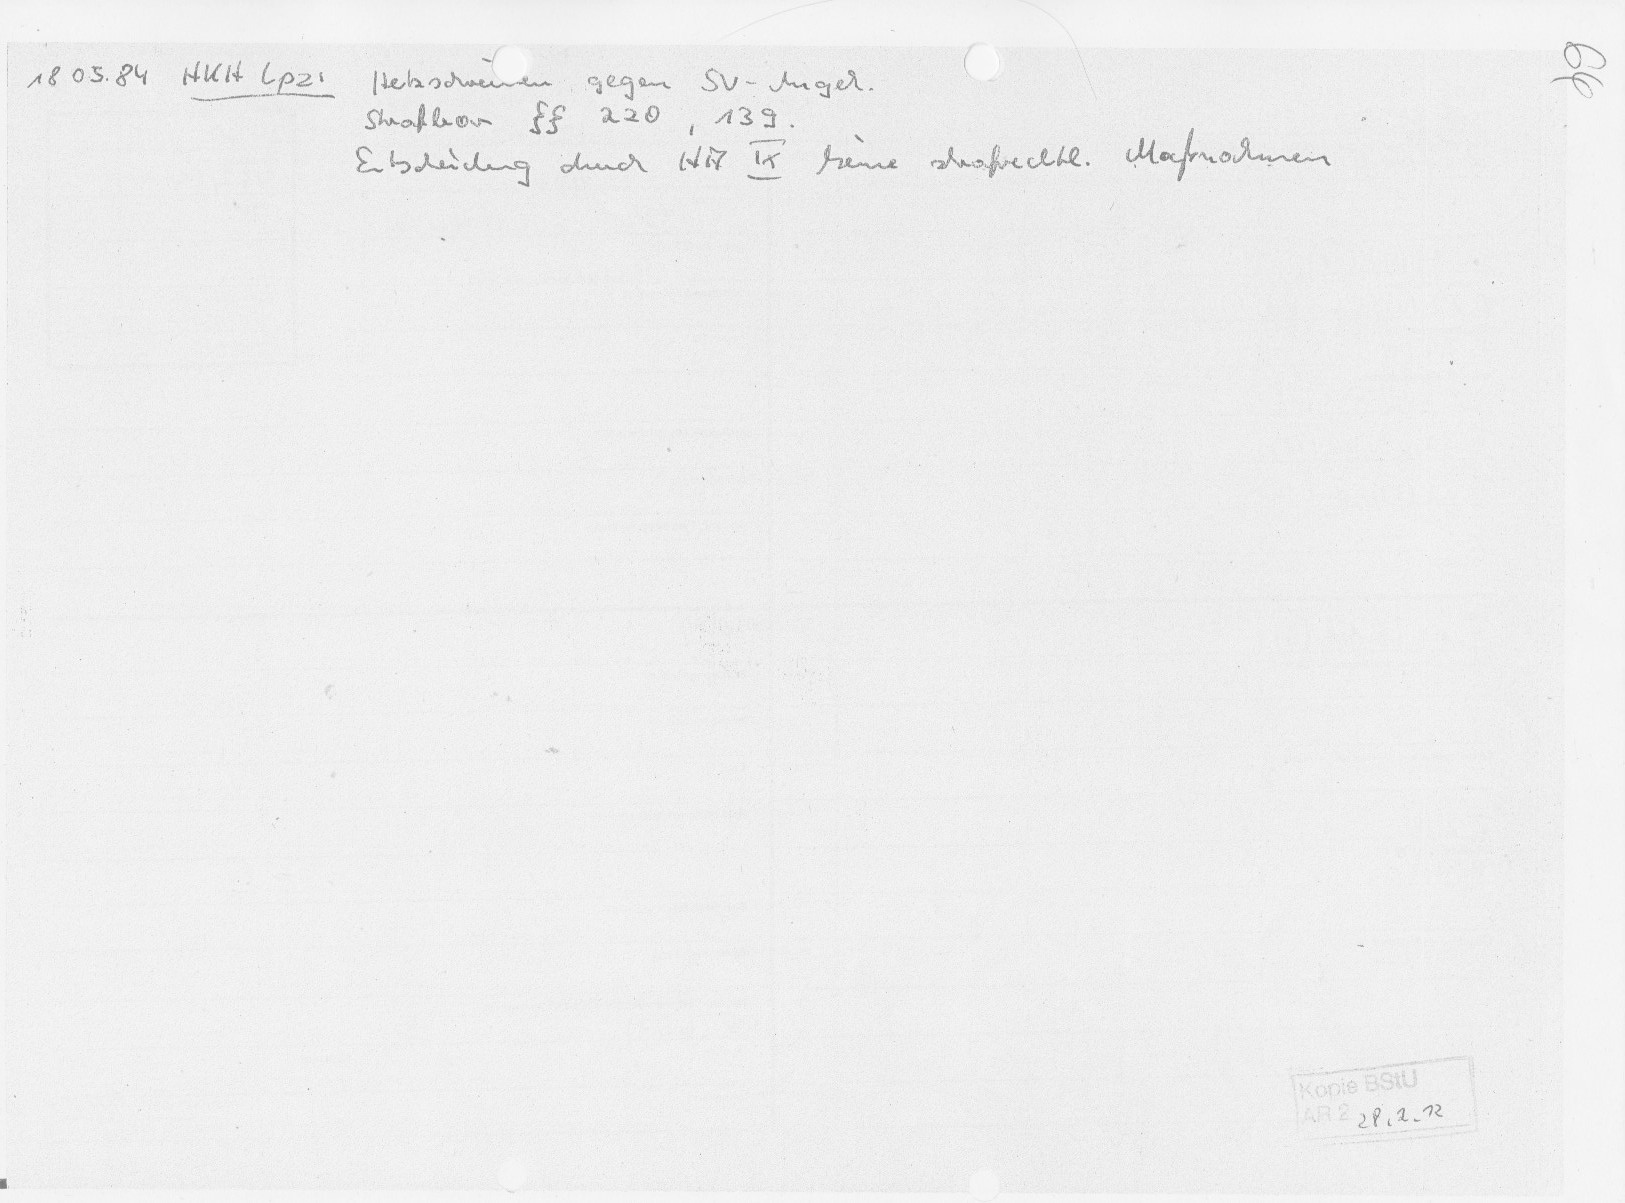 69
18 05.84 HKH Lpz. Hetzschreiben gegen SV-Angeh.
Strafbar §§ 220, 139.
Entscheidung durch HA IX keine strafrechtl. Maßnahmen
Kopie BStU
AR 2 28.2.12